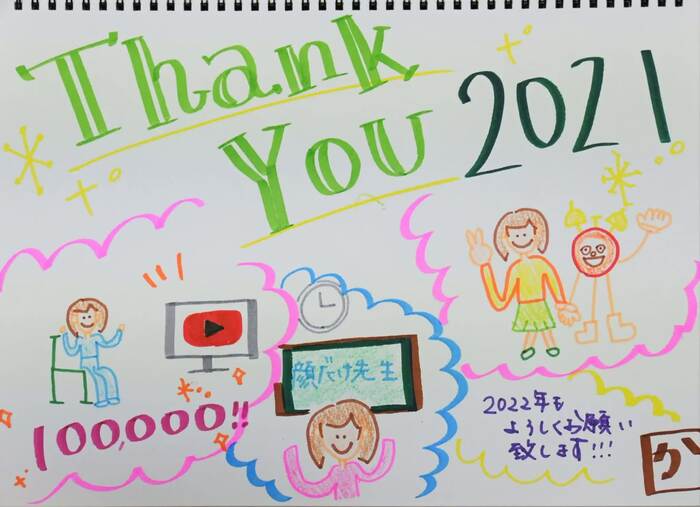 Thank
You 2021
100,000!!
顔だけ先生
2022年も
よろしくお願い
致します!!!
か